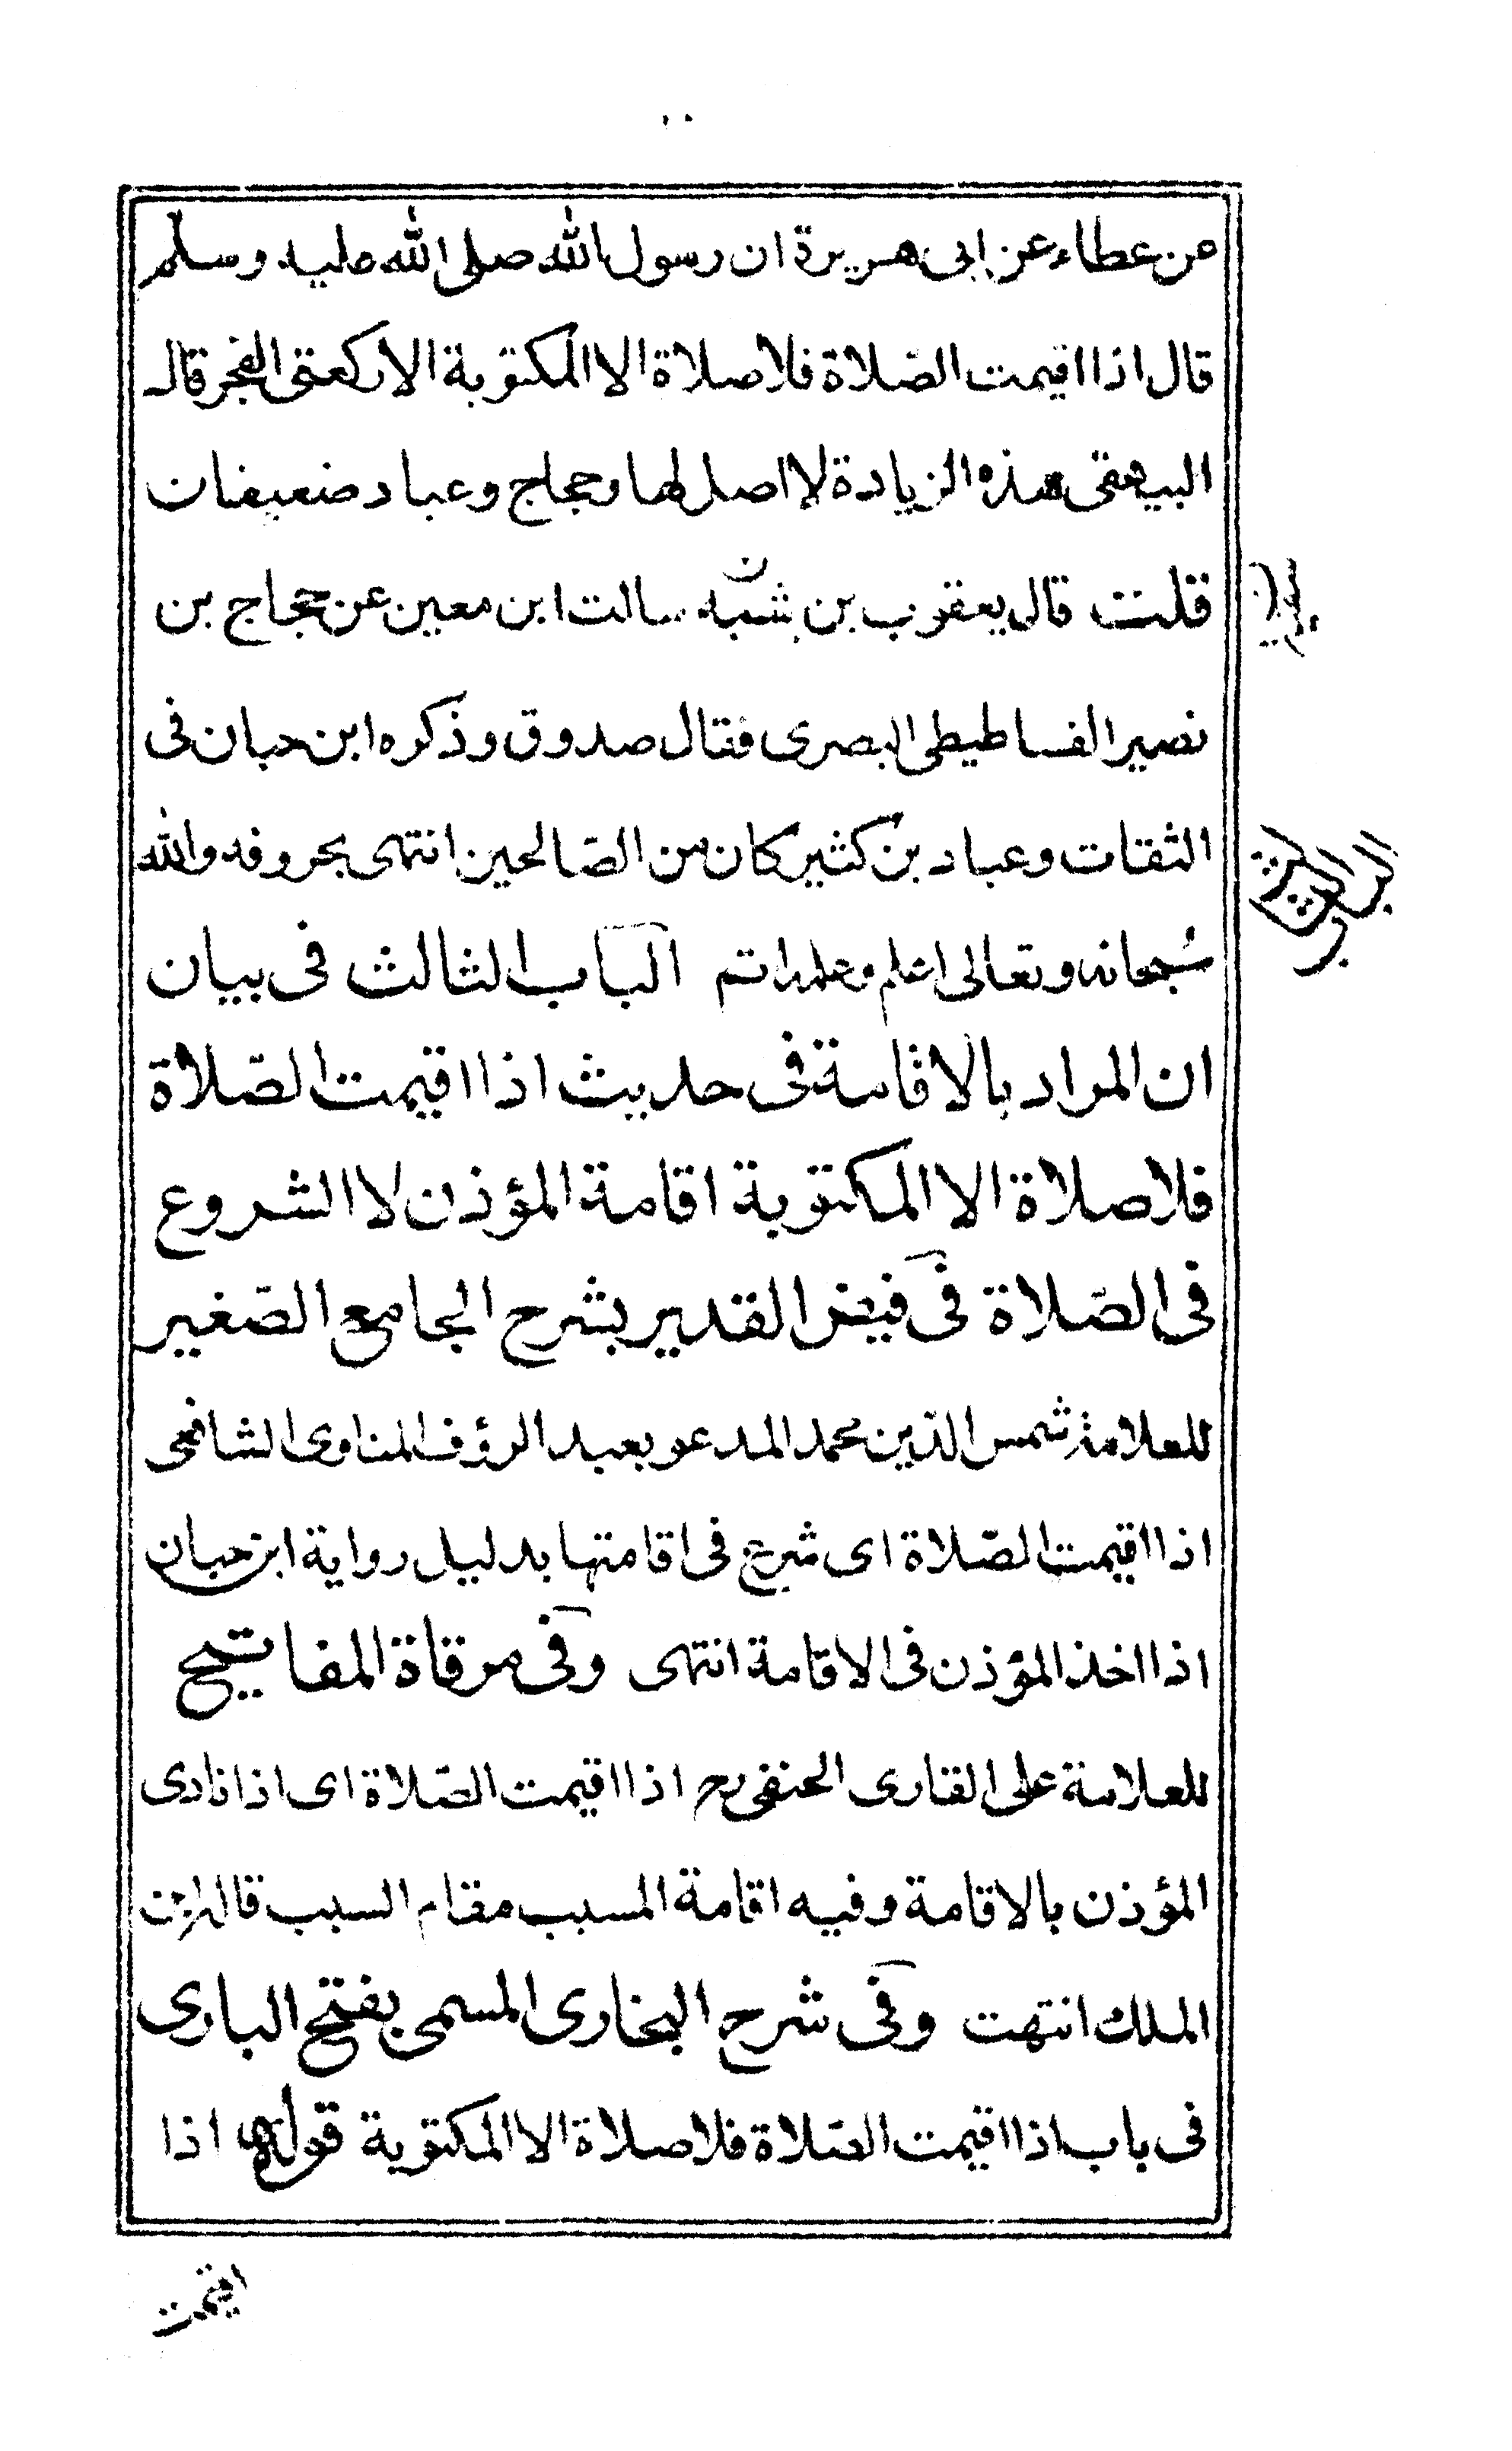 عن عطاء عن ابى هريرة ان رسول الله صلى الله عليه وسلم
قال اذا اقيمت الصّلاة فلا صلاة الا المكتوبة الا ركعتى الفجر قال
البيهقى هذه الزيادة لا اصل لها وحجاج وعباد ضعيفان
قلت قال يعقوب بن شيبة سالت ابن معين عن حجاج بن
نصير الفساطيطى البصرى فقال صدوق وذكره ابن حبان فى
الثقات وعباد بن كثير كان من الصّالحين انتهى بحروفه والله
سُبحانه وتعالى اعلم وعلمه اتم الباب الثالث فى بيان
ان المراد بالاقامة فى حديث اذا اقيمت الصّلاة
فلا صلاة الا المكتوبة اقامة المؤذن لا الشروع
فى الصّلاة فى فيض القدير بشرح الجامع الصّغير
للعلامة شمس الدّين محمد المدعو بعبد الرؤف المناوى الشافعى
اذا اقيمت الصّلاة اى شرع فى اقامتها بدليل رواية ابن حبان
اذا اخذ المؤذن فى الاقامة انتهى وفى مرقاة المفاتيح
للعلامة على القارى الحنفى رح اذا اقيمت الصّلاة اى اذا نادى
المؤذن بالاقامة وفيه اقامة المسبب مقام السبب قاله ابن
الملك انتهت وفى شرح البخارى المسمى بفتح البارى
فى باب اذا اقيمت الصّلاة فلا صلاة الا المكتوبة قوله اذا
اقيمت